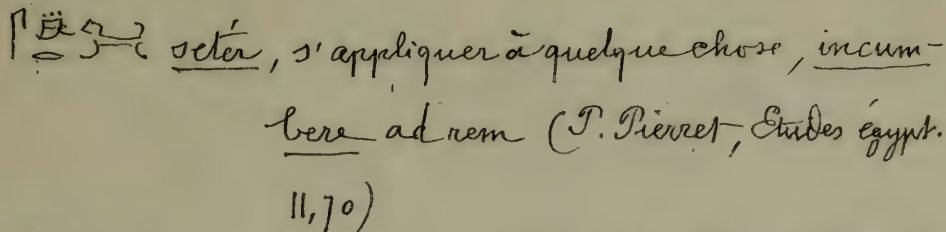 setér, s'appliquer à quelque chose, incum-
bere ad rem (P. Pierret, Etudes égypt.
II, 70)